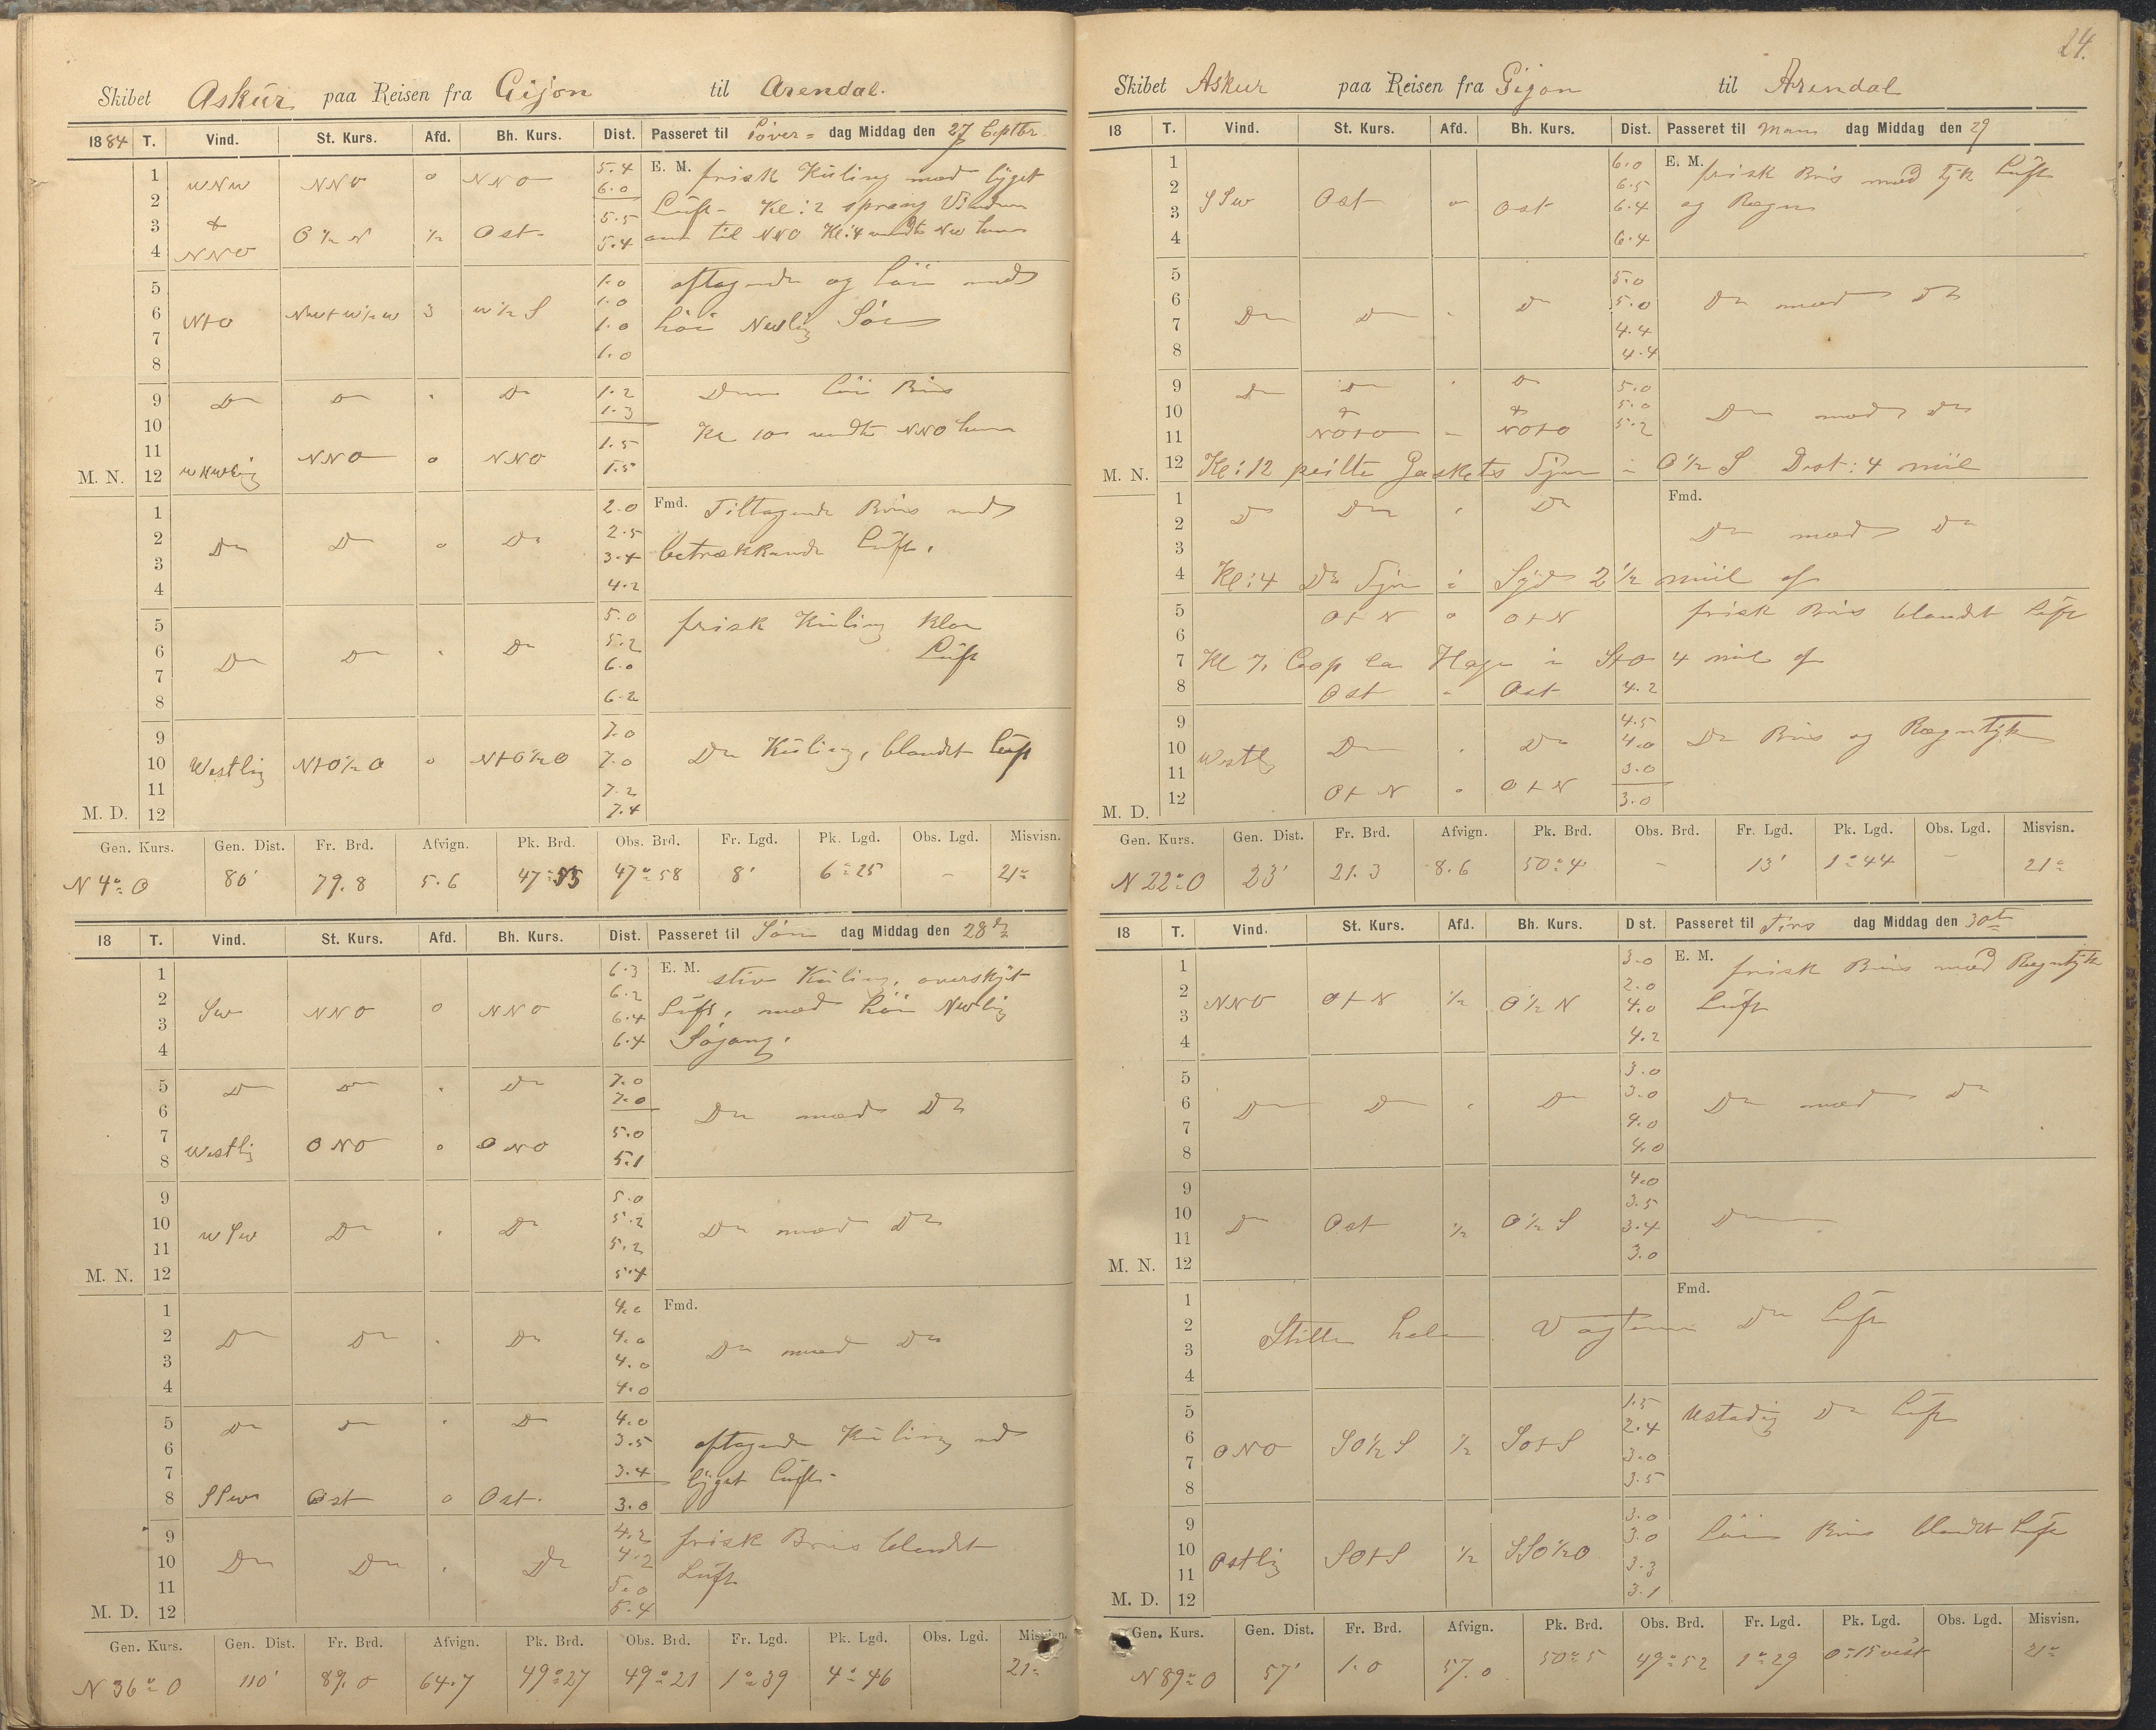 24.
Skibet Askur paa Reisen fra Gijon til Arendal.
1884 T. Vind. St. Kurs. Afd. Bh. Kurs. Dist. Passeret til Löver= dag Middag den 27 Septbr
1 WNW NNO o NNO 5.4 E. M. frisk Kuling med bÿget
2 6.0 Luft. Kl: 2 sprang Vinden
3 & O ½ N ½ Ost. 5.5 om til NNO Kl: 4 vendte NW
4 NNO 5.4
5 1.0 aftagende og Löi med
6 NtO NWtW½W 3 W½S 1.0 höi NWlig Sö
7 1.0
8 1.0
9 Do Do " Do 1.2 Denne löi Bris
10 1.3 Kl 10 vendte NNO
11 NNO o NNO 1.5
M. N. 12 WNWlig 1.5
1 2.0 Fmd. Tiltagende Bris med
2 Do Do o Do 2.5 betrækkende Luft.
3 3.4
4 4.2
5 5.0 frisk Kuling klar
6 Do Do " Do 5.2 Luft
7 6.0
8 6.2
9 7.0
10 Westlig NtO½O o NtO½O 7.0 Do Kuling, blandet Luft
11 7.2
M. D. 12 7.4
Gen. Kurs. Gen. Dist. Fr. Brd. Afvign. Pk. Brd. Obs. Brd. Fr. Lgd. Pk. Lgd. Obs. Lgd. Misvisn.
N 4° O 80' 79.8 5.6 47°55 47°58 8' 6°25 – 21°
18 T. Vind. St. Kurs. Afd. Bh. Kurs. Dist. Passeret til Sön dag Middag den 28de
1 6.3 E. M. stiv Kuling, overskÿet
2 SW NNO o NNO 6.2 Luft, med höi NWlig
3 6.4 Sögang.
4 6.4
5 Do Do " Do 7.0
6 7.0 Do med Do
7 5.0
8 Westlig ONO o ONO 5.1
9 5.0
10 WSW Do " Do 5.2 Do med Do
11 5.2
M. N. 12 5.4
1 4.0 Fmd.
2 Do Do " Do 4.0 Do med Do
3 4.0
4 4.0
5 Do Do " Do 4.0
6 3.5 aftagende Kuling
7 3.4 bÿget Luft.
8 SSW Ost o Ost. 3.0
9 4.2 frisk Bris blandet
10 Do Do " Do 4.2 Luft
11 5.0
M. D. 12 5.4
Gen. Kurs. Gen. Dist. Fr. Brd. Afvign. Pk. Brd. Obs. Brd. Fr. Lgd. Pk. Lgd. Obs. Lgd. Misvisn.
N 36° O 110' 89.0 64.7 49°27 49°21 1°39 4°46 21°
Skibet Askur paa Reisen fra Gijon til Arendal
18 T. Vind. St. Kurs. Afd. Bh. Kurs. Dist. Passeret til Man dag Middag den 29
1 6.0 E. M. frisk Bris med tÿk Luft
2 SSW Ost o Ost 6.5 og Regn
3 6.4
4 6.4
5 5.0
6 Do Do " Do 5.0 Do med Do
7 4.4
8 4.4
9 Do Do " Do 5.0
10 & & 5.0 Do med Do
11 NOtO – NOtO 5.2
M. N. 12 Kl: 12 peilte Gaskets Fÿr i O½S Dist: 4 miil
1 Fmd.
2 Do Do " Do Do med Do
3
4 Kl: 4 Do Fÿr i Sÿd 2½ miil af
5 OtN o OtN frisk Bris blandet Luft
6
7 Kl 7, Cap la Hage i StO 4 mil af
8 Ost " Ost 4.2
9 4.5
10 Westlig Do " Do 4.0 Do Bris og Regntÿk
11 3.0
M. D. 12 OtN o OtN 3.0
Gen. Kurs. Gen. Dist. Fr. Brd. Afvign. Pk. Brd. Obs. Brd. Fr. Lgd. Pk. Lgd. Obs. Lgd. Misvisn.
N 22° O 23' 21.3 8.6 50°4 – 13' 1°44 – 21°
18 T. Vind. St. Kurs. Afd. Bh. Kurs. Dist. Passeret til Tirs dag Middag den 30te
1 3.0 E. M. frisk Bris med Regntÿk
2 NNO OtN ½ O½N 2.0 Luft
3 4.0
4 4.2
5 3.0
6 Do Do " Do 3.0 Do med Do
7 4.0
8 4.0
9 4.0
10 Do Ost ½ O½S 3.5 Do
11 3.4
M. N. 12 3.0
1 Fmd.
2 Stille hele Vagten Do Luft
3
4
5 1.5 Ustadig Do Luft
6 ONO SO½S ½ SOtS 2.4
7 3.0
8 3.5
9 3.0 Löi Bris blandet Luft
10 Ostlig SOtS ½ SSO½O 3.0
11 3.3
M. D. 12 3.1
Gen. Kurs. Gen. Dist. Fr. Brd. Afvign. Pk. Brd. Obs. Brd. Fr. Lgd. Pk. Lgd. Obs. Lgd. Misvisn.
N 89° O 57' 1.0 57.0 50°5 49°52 1°29 0°15 vest 21°